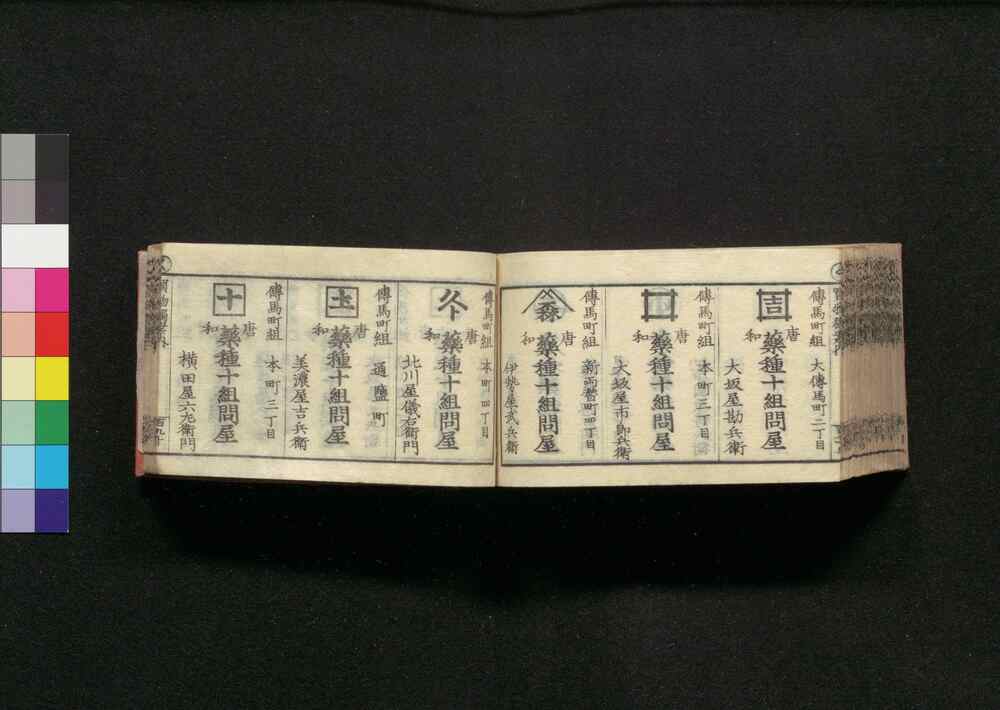 傳馬町組 大傳馬町二丁目
吉
唐和 藥種十組問屋
大坂屋勘兵衛
傳馬町組 本町三丁目
唐和 藥種十組問屋
大坂屋市郎兵衛
傳馬町組 新両替町四丁目
森
唐和 藥種十組問屋
伊勢屋武兵衛
傳馬町組 本町四丁目
久
唐和 藥種十組問屋
北川屋儀右衛門
傳馬町組 通塩町
唐和 藥種十組問屋
美濃屋吉兵衛
傳馬町組 本町三丁目
十
唐和 藥種十組問屋
横田屋六左衛門
百九十